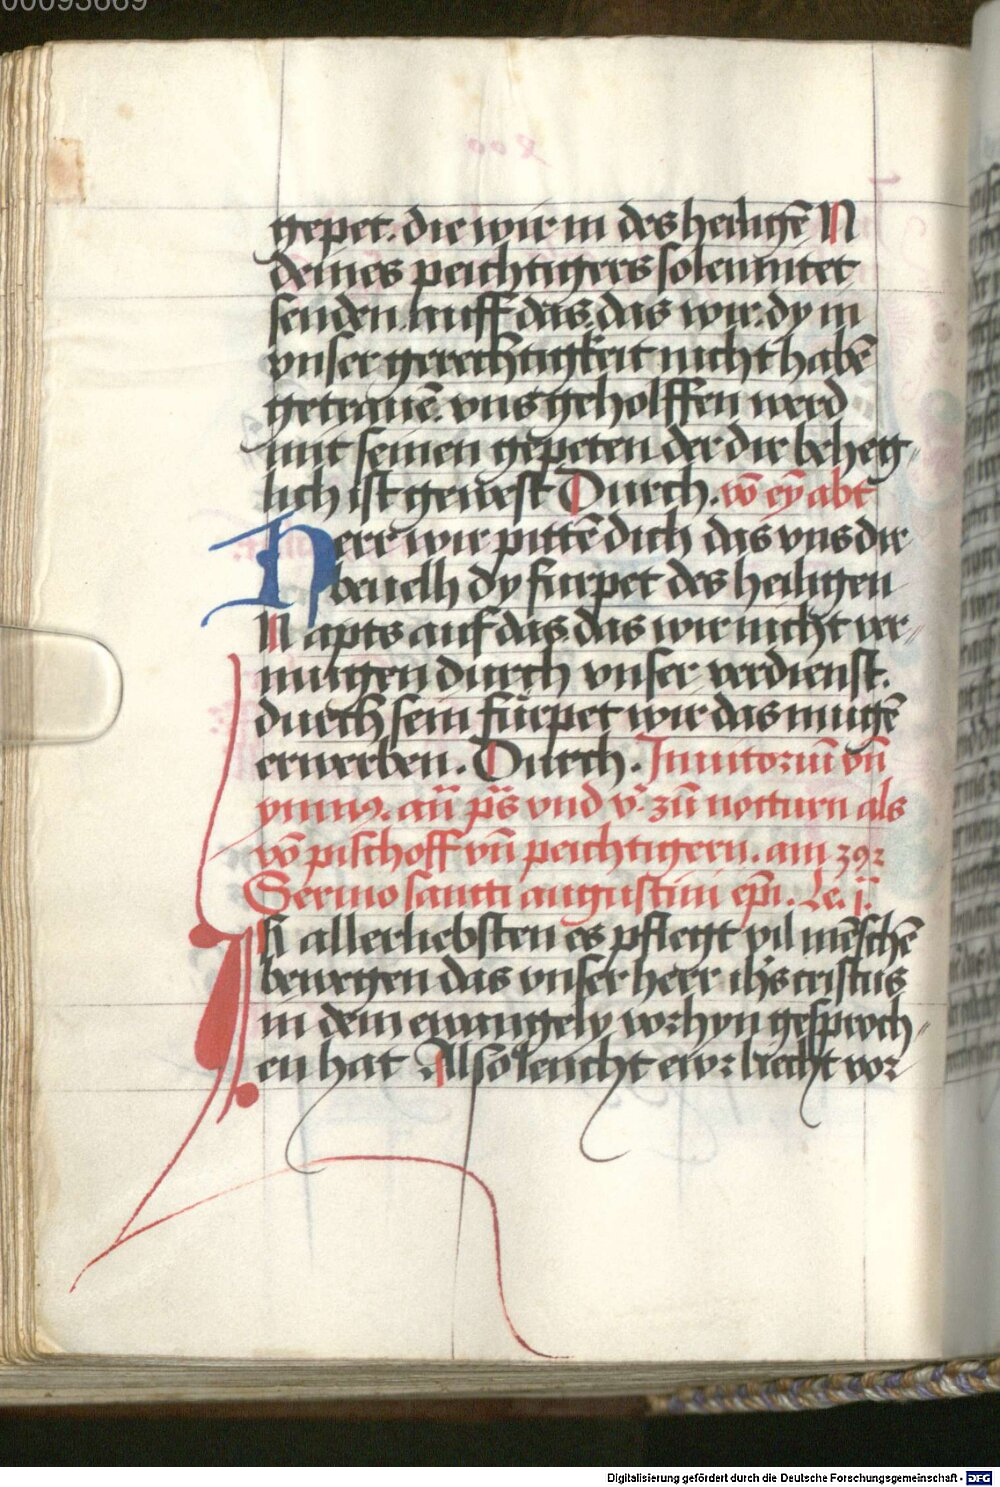 00093669
gepet. die wir in des heiligē N
deines peichtigers solennitet
senden. auff das. das wir. dy in
vnser gerechtigkeit nicht habē
getrauē. vns geholffen werd
mit seinen gepeten der dir beheg„
lich ist gewest Durch. vō eȳ abt
Herr wir pittē dich das vns dir
beuelh dy furpet des heiligen
N apts auf das. das wir nicht ver„
mugen durch vnser verdienst.
durch sein fürpet wir das mugē
erwerben. Durch. Inuitoriū vn̄
ymnꝰ. an̄ ps̄ vnd v. zū notturn als
vō pischoff vn̄ peichtigern. am 39
Sermo sancti augustini epī. Le. j.
IR allerliebsten es pflegt vil mēschē
bewegen das vnser herr ih's cristus
in dem ewangely vorhyn gesproch„
en hat Also leucht ewr liecht vor
Digitalisierung gefördert durch die Deutsche Forschungsgemeinschaft - DFG